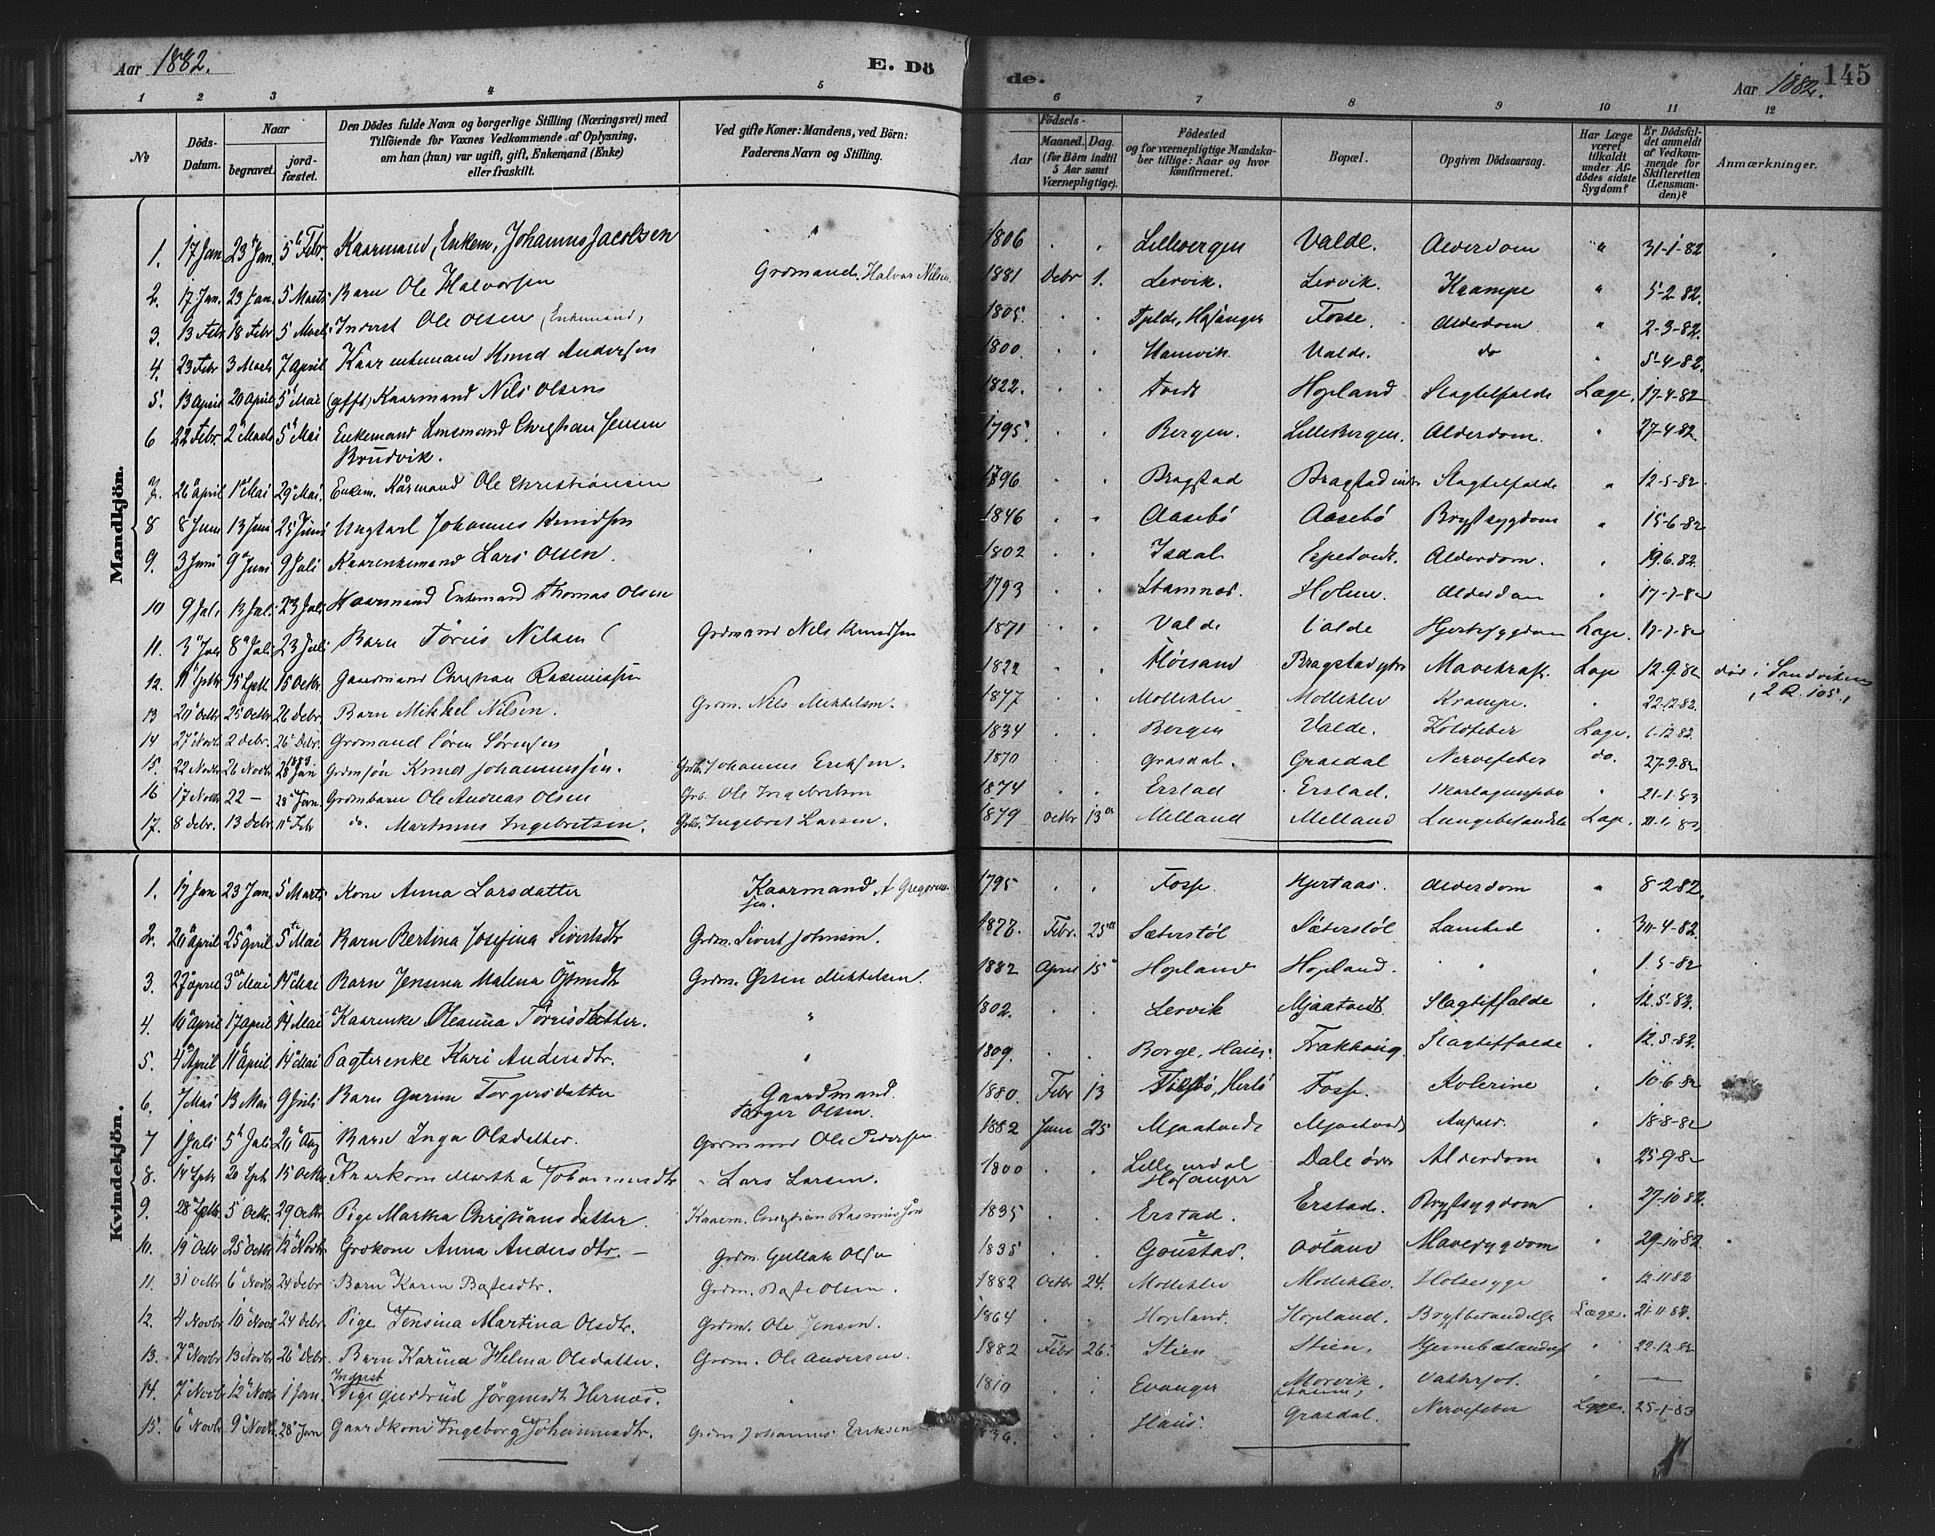 Aar 1882. E. Dö de. Aar 1882. 145
1 2 3 4 5 6 7 8 9 10 11 12
No
Döds-Datum.
Naar
begravet.
jord-fæstet.
Den Dödes fulde Navn og borgerlige Stilling (Næringsvei) med
Tilföiende for Voxnes Vedkommende af Oplysning,
om han (hun) var ugift, gift, Enkemand (Enke)
eller fraskilt.
Ved gifte Koner: Mandens, ved Börn:
Faderens Navn og Stilling.
Födsels-
Aar
Maaned. Dag.
(for Börn indtil
5 Aar samt
Værnepligtige).
Födested
og for værnepligtige Mandska-
ber tillige: Naar og hvor
konfirmeret.
Bopæl.
Opgiven Dödsaarsag.
Har Læge
været
tilkaldt
under Af-
dödes sidste
Sygdom?
Er Dödsfal-
det anmeldt
af Vedkom-
mende for
Skifteretten
(Lensman-
den)?
Anmærkninger.
Mandkjön.
1. 17 Jan 23 Jan. 5 Febr. Kaarmand, Enkem, Johannes Jacobsen " 1806 . . Lillebergen Valde. Alderdom " 31-1-82
2. 17 Jan. 23 Jan. 5 Marts Barn Ole Halvorsen Grdmand Halvor Nilsen 1881 Debr 1. Lervik. Lervik. Krampe " 5-2 82.
3. 13 Febr 18 Febr 5 Marts Inderst Ole Olsen (Enkemand) 1805. . . Hosanger Fosse. Alderdom " 2-3-82.
4. 23 Febr 3 Marts 7 April Kaarenkemand Knud Andersen 1800. . . Hamvik Valde. do " 5-4-82.
5. 13 April 20 April 5 Mai (gift) Kaarmand Nils Olsen 1822. . . Tvedt Hopland Slagtilfælde Læge. 17-4-82
6 22 Febr. 2 Marts 5 Mai Enkemand Lensmand Christian Jensen 1795. . . Bergen. Lillebergen. Alderdom. . 27-4-82
Brudvik.
7. 26 April 1 Mai 29 Mai. Enkem. Kårmand Ole Christiansen 1796 Bragstad Bragstad indr Slagtilfælde " 12-5-82
8 8 Juni 13 Juni 25 Juni Ungkarl Johannes Knudsen 1846 . . Aasebö Aasebö Brystsygdom . 15-6-82
9. 3 Juni 9 Juni 9 Juli Kaarenkemand Lars Olsen. 1802 . . Isdal Espetvedt. Alderdom. . 19.6.82
10 9 Juli 13 Juli 23 Juli Kaarmand Enkemand Thomas Olsen 1793 . . Stamnes. Holme. Alderdom . 17-7-82
11. 3 Juli 8 Juli 23 Juli Barn Nilsen Grdmand Nils Knudsen 1871 . . Valde Valde Hjertesygdom Læge. 17-7-82
12. 11 Septbr 15 Septbr 15 Octbr Gaardmand Christian Rasmussen 1822 . . Bragstad ytre Mavekræft. Læge 12.9.82 död i Sandviken
13 20 Octbr 25 Octbr 26 Debr. Barn Mikkel Nilsen. Grdm. Nils Mikkelsen. 1877 . . Molleklev Molleklev Krampe. . 22-12-82. 2 R. 105.
14 27 Novbr 2 Debr. 26 Debr. Grdmand Sören Sörensen 1834 Bergen Valde. Koldfeber Læge. 1-12 82.
15. 22 Novbr 26 Novbr 28 Jan 1883 Grdmsön Knud Johannessen. Johannes Eriksen. 1870 Grasdal. Grasdal Nervefeber do. 27-9-82
16 17 Novbr 22 – 28 Jan. Grdmbarn Ole Andreas Olsen Grb. Ole Ingebretsen 1874 . . Erstad Erstad. Skarlagensfeber . 21-1-83
17. 8 Debr. 13 Debr. 11 Febr do. Martinus Ingebretsen. Ingebret Larsen. 1879 Octbr 13 Melland Melland Lungebetændelse Læge.
Kvindekjön.
1. 17 Jan 23 Jan. 5 Marts Kone Anna Larsdatter Kaarmand A Gregorius- 1795 . . Fosse. Hjertaas. Alderdom " 8-2 82.
sen.
2. 20 April 25 April 5 Mai Barn Bertina Josefina Sivertsdtr Grdm. Sivert Johnsen. Febr. 25 Sæterstöl Sæterstöl . 30-4-82.
3. 27 April 3 Mai 14 Mai Barn Jensina Malena Grdm. Östen Mikkelsen. 1882 April 15 Hopland Hopland. " . 1.5-82
4. 10 April 17 April 14 Mai Kaarenke Oleanna Torrisdatter. " 1802. . . Lervik Mjaatvedt Slagtilfælde . 12.5-82.
5. 4 April 11 April 14 Mai Pagterenke Kari Andersdtr. " 1809. . . Borge, Haus. Slagtilfælde . 12.5-82.
6. 7 Mai 13 Mai 9 Juli Barn Guruie Torgersdatter Gaardmand 1880. Febr 13 Herlö Fosse. Kolerine . 10-6-82
Torger Olsen.
7 1 Juli 5 Juli 20 Aug Barn Inga Olsdatter. Grdmand Ole Pedersen 1882 Juni 25 Mjaatvedt Mjaatvedt . 18-8-82
8. 14 Septbr 20 Septbr 15 Octbr Kaarkone Martha Johannesdtr " Lars Larsen. 1800 . . Lille urdal Dale övre Alderdom . 25-9-82
Hosanger
9. 28 Septbr 5 Octbr. 29 Octbr Pige Martha Christiansdatter. Kaarm. Christian Rasmussen 1835 . . Erstad. Erstad. Brystsygdom . 27-10 82.
10. 19 Octbr 25 Octbr 12 Novbr Grdkone Anna Andersdtr. – Grdm. Gullak Olsen 1835 . . Gaustad. Mavesygdom . 29-10 82
11. 31 Octbr 6 Novbr 24 Debr Barn Karen Bastesdtr. Grdm. Baste Olsen. 1882 Octbr 24. Molleklev Molleklev. Halsesyge . 12-11 82
12. 4 Novbr 10 Novbr 24 Debr. Pige Jensina Martina Olsdtr. Grdm. Ole Jensen. 1864 Hopland. Hopland. Brystbetændelse Læge. 21-11 82.
13. 7 Novbr 13 Novbr 26 Debr Barn Karina Helena Olsdatter. Grdm. Ole Andersen. 1882 Febr 26. Stien Stien. Hjernebetændelse . 22-12-82
14. 7 Novbr 12 Novbr 1 Jan. Inderst Pige Gjertrud Jörgensdt Hernæs. 1810 . . Evanger Morvik. Vattersot. . —
15. 6 Novbr 9 Novbr 28 Jan Gaardkone Ingeborg Johannesdtr. Grdm Johannes Eriksen . . Haus. Grasdal. Nervefeber Læge. 25-1-83